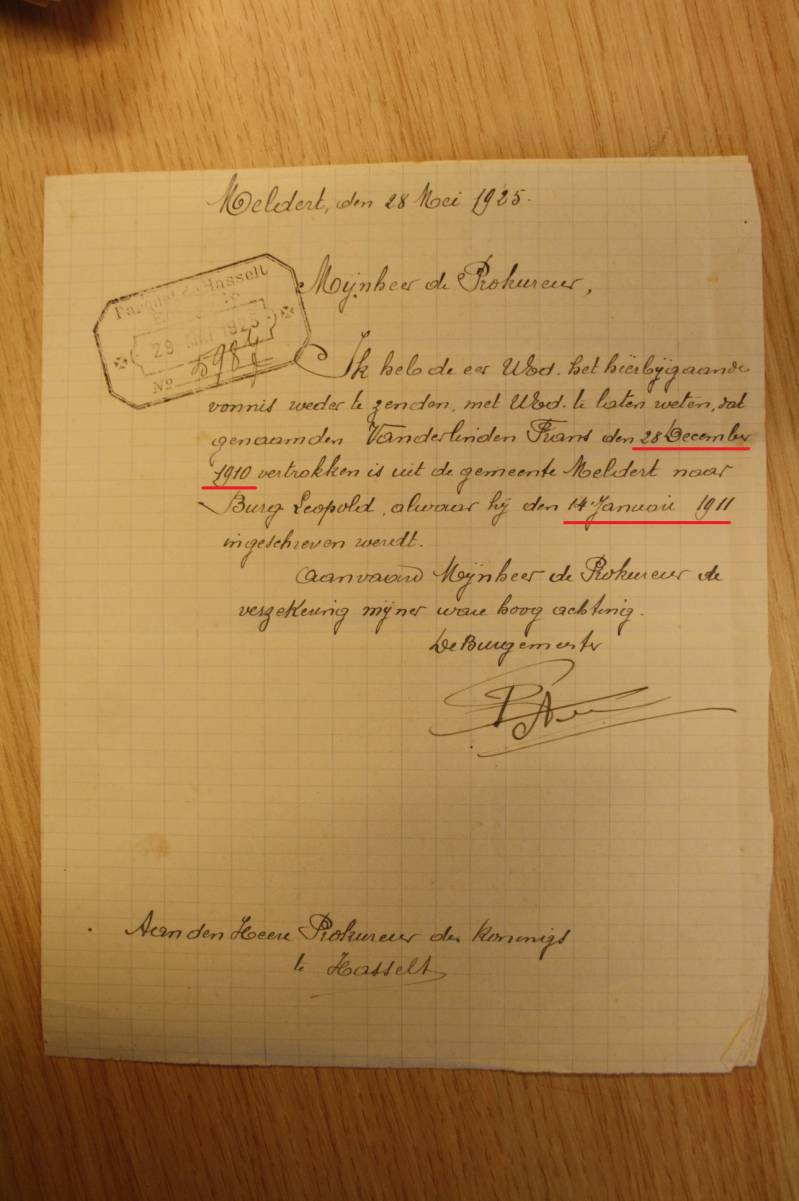 Meldert, den 28 Mei 1925.
Parquet Hasselt
29 1925
No 5984
Mijnheer de Prokureur,
Ik heb de eer UEd. het hierbijgaande
vonnis weder te zenden, met UEd. te laten weten, dat
genaamden Vanderlinden Frans den 28 December
1910 vertrokken is uit de gemeente Meldert naar
Burg Leopold, alwaar hij den 14 Januari 1911
ingeschreven werdt.
Aanvaard Mijnheer de Prokureur de
verzekering mijner ware hoog achting.
De Burgemeester
Aan den Heere Prokureur des Konings
te Hasselt